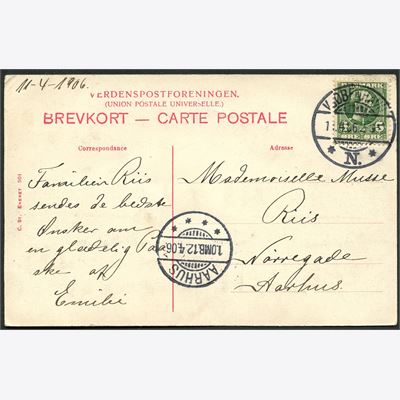 11-4-1906.
VERDENSPOSTFORENINGEN.
(UNION POSTALE UNIVERSELLE.)
BREVKORT — CARTE POSTALE
Correspondance
Adresse
Familien Riis
sendes de bedste
Ønsker om
en glædelig Paa-
ske af
Emilie
Mademoiselle Musse
Riis
Nørregade
Aarhus.
1.OMB.12.4.06
AARHUS
N.
5
ØRE
C. St. Eneret 501